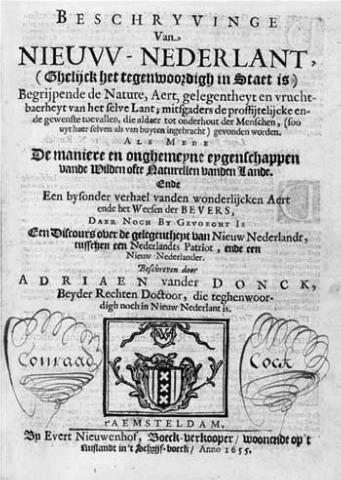 BESCHRYVINGE
Van
NIEUVV-NEDERLANT,
(Ghelijck het tegenwoordigh in Staet is)
Begrijpende de Nature, Aert, gelegentheyt en vrucht-
baerheyt van het selve Lant; mitsgaders de proffijtelijcke en-
de gewenste toevallen, die aldaer tot onderhout der Menschen, (soo
uyt haer selven als van buyten ingebracht) gevonden worden.
ALS MEDE
De maniere en onghemeyne eygenschappen
vande Wilden ofte Naturellen vanden Lande.
Ende
Een bysonder verhael vanden wonderlijcken Aert
ende het Weesen der BEVERS,
DAER NOCH BY GEVOEGHT IS
Een Discours over de gelegentheyt van Nieuw Nederlandt,
tusschen een Nederlandts Patriot, ende een
Nieuw Nederlander.
Beschreven door
ADRIAEN vander DONCK,
Beyder Rechten Doctoor, die teghenwoor-
digh noch in Nieuw Nederlant is.
Conraad Cock
t'AEMSTELDAM,
By Evert Nieuwenhof, Boeck-verkooper / woonende op 't
Ruslandt in 't Schrijf-boeck / Anno 1655.